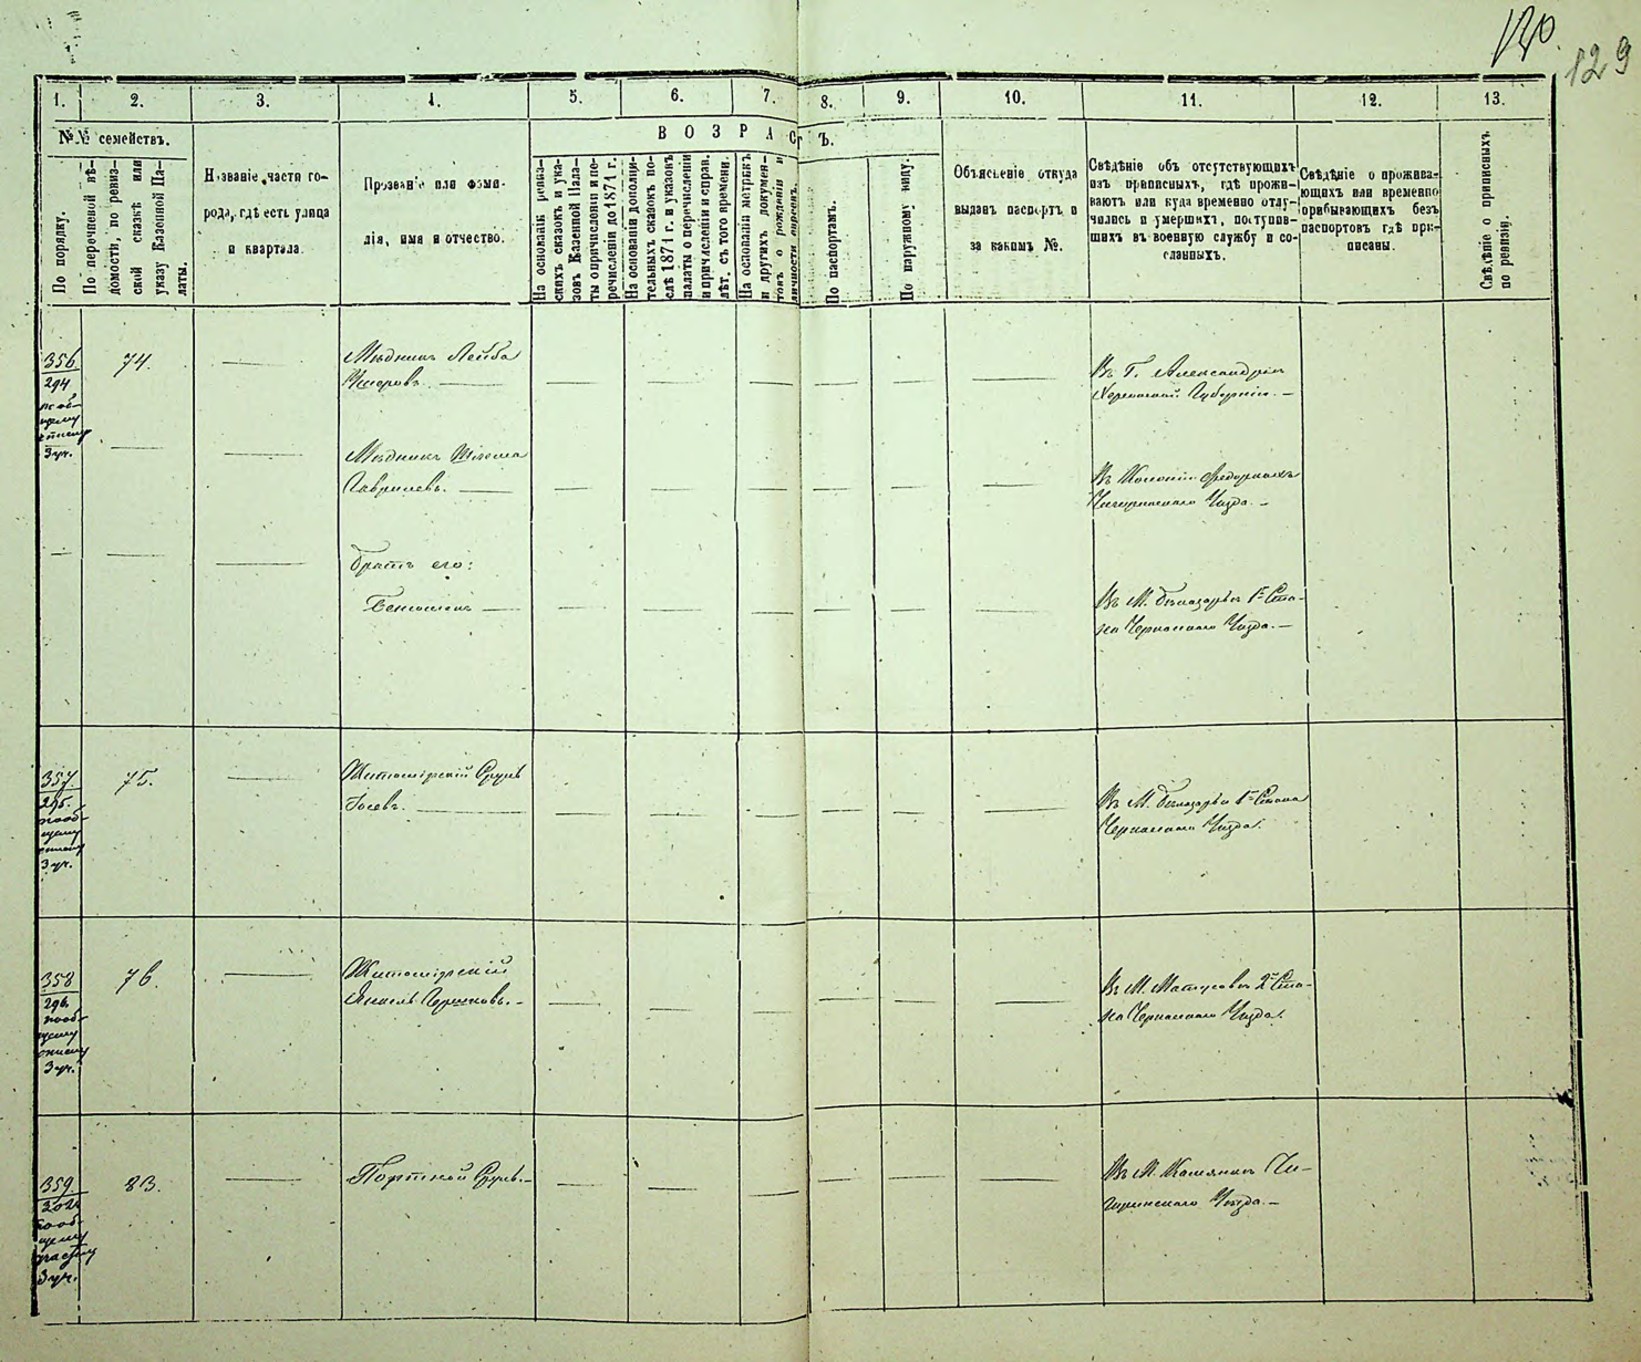 129
1. 2. 3. 4. 5. 6. 7. 8. 9. 10. 11. 12. 13.
№№ семействъ.
По порядку.
По перечневой вѣ-
домости, по ревиз-
ской сказкѣ или
указу Казенной Па-
латы.
Названіе части го-
рода, гдѣ есть улица
и квартала.
Прозваніе или фами-
лія, имя и отчество.
ВОЗРАСТЪ.
На основаніи ревиз-
скихъ сказокъ и ука-
зовъ Казенной Пала-
ты о причисленіи и пе-
речисленіи до 1871 г.
На основаніи дополни-
тельныхъ сказокъ по-
слѣ 1871 г. и указовъ
палаты о перечисленіи
и причисленіи и справ.
лѣт. съ того времени.
На основаніи метрикъ
и другихъ докумен-
товъ о рожденіи и
По паспортамъ.
По наружному виду.
Объясненіе откуда
выданъ паспортъ и
за какимъ №.
Свѣдѣніе объ отсутствующихъ
изъ приписныхъ, гдѣ прожи-
ваютъ или куда временно отлу-
чились и умершихъ, поступив-
шихъ въ военную службу и со-
сланныхъ.
Свѣдѣніе о прожива-
ющихъ или временно
прибывающихъ безъ
паспортовъ гдѣ при-
писаны.
Свѣдѣніе о приписныхъ
по ревизіи.
356
294
по об-
щему
списку
3 уч.
74.
Мѣдникъ Лейба
Въ Г. Александріи
Херсонской Губерніи. —
Мѣдникъ Шлема
Гавриловъ. —
Въ Колоніи
Чигиринскаго Уѣзда. —
братъ его:
Бенціонъ —
Въ М. Бѣлозорьи 1го Ста-
на Черкасскаго Уѣзда. —
357.
295.
по об-
щему
списку
3 уч.
75.
Житомірскій Сруль
Іосевъ. —
Въ М. Бѣлозорьи 1го Стана
Черкасскаго Уѣзда.
358
296.
по об-
щему
списку
3 уч.
76.
Житомірскій
Янкель Гершковъ. —
Въ М. Матусовѣ 2го Ста-
на Черкасскаго Уѣзда.
359.
302
по об-
щему
3 уч.
83.
Портной Сруль. —
Въ М. Каменкѣ Чи-
гиринскаго Уѣзда. —